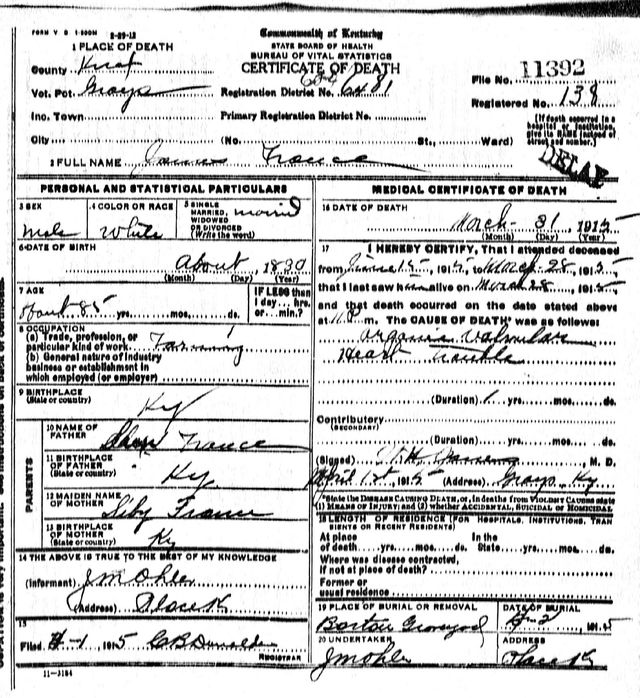 FORM V S 1-500M 2-29-12
1 PLACE OF DEATH
County Knox
Vot. Pct. Grays
Inc. Town
City
Commonwealth of Kentucky
STATE BOARD OF HEALTH
BUREAU OF VITAL STATISTICS
CERTIFICATE OF DEATH
Registration District No. 6481
Primary Registration District No.
(No. St., Ward)
File No. 11392
Registered No. 138
(If death occurred in a
hospital or institution,
give its NAME instead of
street and number.)
2 FULL NAME James France
DELAY
PERSONAL AND STATISTICAL PARTICULARS
3 SEX
male
4 COLOR OR RACE
White
5 SINGLE
MARRIED,
WIDOWED
OR DIVORCED
(Write the word)
married
6 DATE OF BIRTH
About 1830
(Month) (Day) (Year)
7 AGE
About 85 yrs. mos. ds.
IF LESS than
1 day... hrs.
or... min.?
8 OCCUPATION
(a) Trade, profession, or
particular kind of work Farming
(b) General nature of industry
business or establishment in
which employed (or employer)
9 BIRTHPLACE
(State or country)
Ky
PARENTS
10 NAME OF
FATHER
France
11 BIRTHPLACE
OF FATHER
(State or country)
Ky
12 MAIDEN NAME
OF MOTHER
France
13 BIRTHPLACE
OF MOTHER
(State or country)
Ky
14 THE ABOVE IS TRUE TO THE BEST OF MY KNOWLEDGE
(Informant) J M Ohler
(Address) Place Ky
15
Filed 4-1 1915 C B Donaldson
REGISTRAR
11-3184
MEDICAL CERTIFICATE OF DEATH
16 DATE OF DEATH
March 31 1915
(Month) (Day) (Year)
17 I HEREBY CERTIFY, That I attended deceased
from June 15, 1915, to March 28, 1915
that I last saw him alive on March 28 1915
and that death occurred on the date stated above
at 11 P m. The CAUSE OF DEATH* was as follows:
organic valvular
Heart trouble
(Duration) 1 yrs. mos. ds.
Contributory
(SECONDARY)
(Duration) yrs. mos. ds.
(Signed) M. D.
April 1st 1915 (Address) Grays Ky
*State the DISEASE CAUSING DEATH, or, in deaths from VIOLENT CAUSES state
(1) MEANS OF INJURY; and (2) whether ACCIDENTAL, SUICIDAL OR HOMICIDAL
18 LENGTH OF RESIDENCE (FOR HOSPITALS, INSTITUTIONS, TRAN
SIENTS OR RECENT RESIDENTS)
At place In the
of death yrs. mos. ds. State yrs. mos. ds.
Where was disease contracted,
if not at place of death?
Former or
usual residence
19 PLACE OF BURIAL OR REMOVAL
Barton Graveyard
DATE OF BURIAL
4-2 1915
20 UNDERTAKER
J M Ohler
ADDRESS
Place Ky